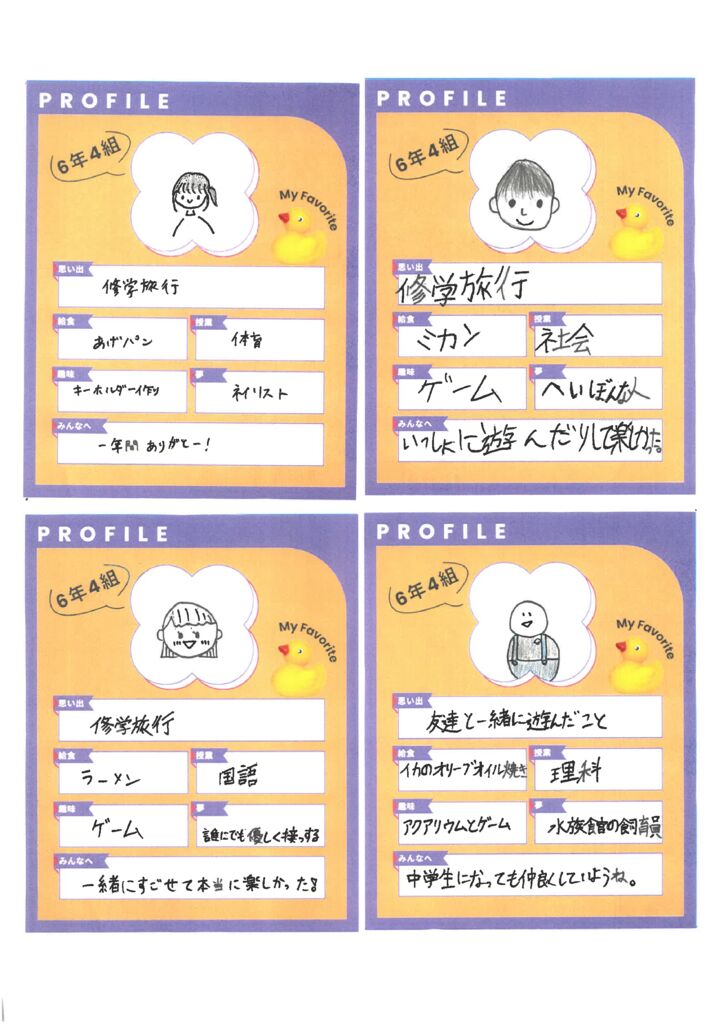 PROFILE
6年4組
My Favorite
思い出
修学旅行
給食
あげパン
授業
体育
趣味
キーホルダー作り
夢
ネイリスト
みんなへ
一年間ありがとー!
PROFILE
6年4組
My Favorite
思い出
修学旅行
給食
ミカン
授業
社会
趣味
ゲーム
夢
へいぼんな人
みんなへ
いっしょに遊んだりして楽しかった。
PROFILE
6年4組
My Favorite
思い出
修学旅行
給食
ラーメン
授業
国語
趣味
ゲーム
夢
誰にでも優しく接っする
みんなへ
一緒にすごせて本当に楽しかった!
PROFILE
6年4組
My Favorite
思い出
友達と一緒に遊んだこと
給食
イカのオリーブオイル焼き
授業
理科
趣味
アクアリウムとゲーム
夢
水族館の飼育員
みんなへ
中学生になっても仲良くしていようね。